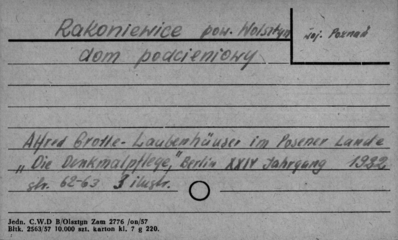 Rakoniewice pow. Wolsztyn
woj. Poznań
dom podcieniowy
Alfred Grotte - Laubenhäuser im Posener Lande
„Die Denkmalpflege," Berlin XXIV Jahrgang 1922
str. 62-63 3 ilustr.
Jedn. C.W.D B/Olsztyn Zam 2776 /on/57
Bltk. 2563/57 10.000 szt. karton kl. 7 g 220.